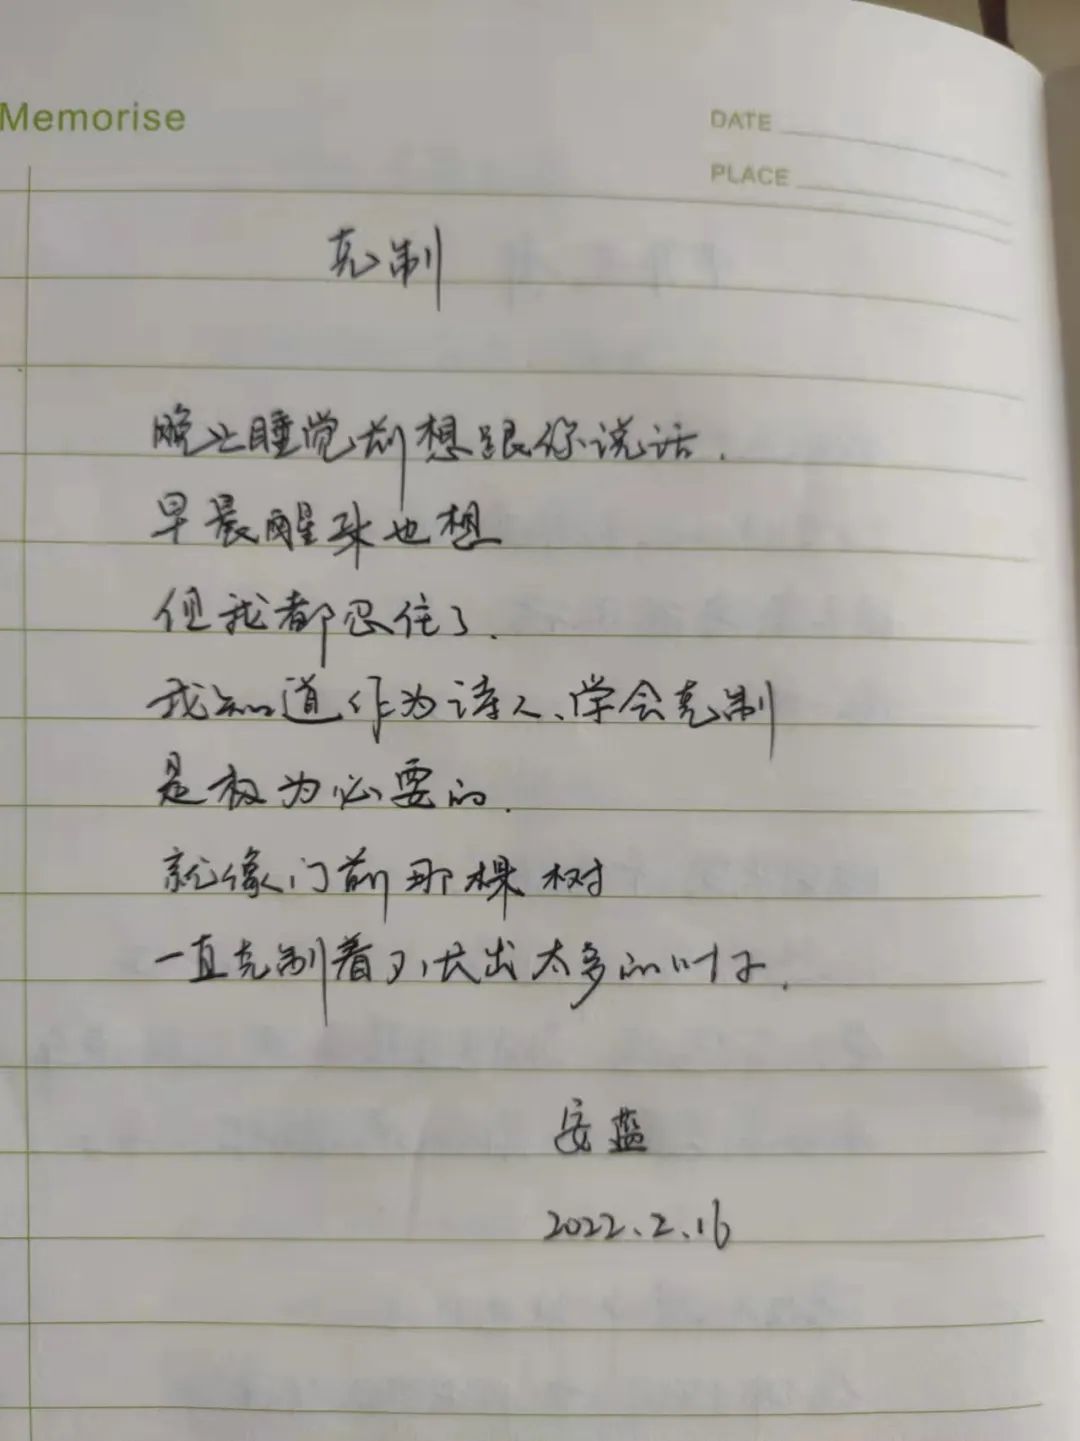 Memorise
DATE
PLACE
克制
晚上睡觉前想跟你说话.
早晨醒来也想
但我都忍住了.
我知道作为诗人、学会克制
是极为必要的.
就像门前那棵树
一直克制着不长出太多的叶子.
安蓝
2022.2.16